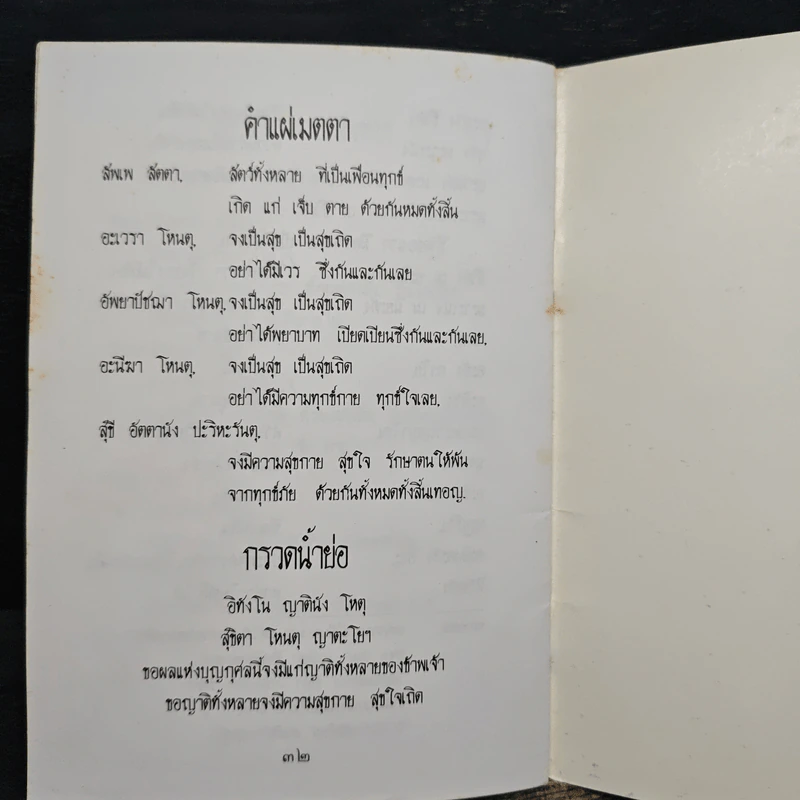 คำแผ่เมตตา
สัพเพ สัตตา. สัตว์ทั้งหลาย ที่เป็นเพื่อนทุกข์
เกิด แก่ เจ็บ ตาย ด้วยกันหมดทั้งสิ้น
อะเวรา โหนตุ. จงเป็นสุข เป็นสุขเถิด
อย่าได้มีเวร ซึ่งกันและกันเลย
อัพยาปัชฌา โหนตุ. จงเป็นสุข เป็นสุขเถิด
อย่าได้พยาบาท เบียดเบียนซึ่งกันและกันเลย.
อะนีฆา โหนตุ. จงเป็นสุข เป็นสุขเถิด
อย่าได้มีความทุกข์กาย ทุกข์ใจเลย.
สุขี อัตตานัง ปะริหะรันตุ.
จงมีความสุขกาย สุขใจ รักษาตนให้พ้น
จากทุกข์ภัย ด้วยกันทั้งหมดทั้งสิ้นเทอญ.
กรวดน้ำย่อ
อิทังโน ญาตินัง โหตุ
สุขิตา โหนตุ ญาตะโยฯ
ขอผลแห่งบุญกุศลนี้จงมีแก่ญาติทั้งหลายของข้าพเจ้า
ขอญาติทั้งหลายจงมีความสุขกาย สุขใจเถิด
๓๒